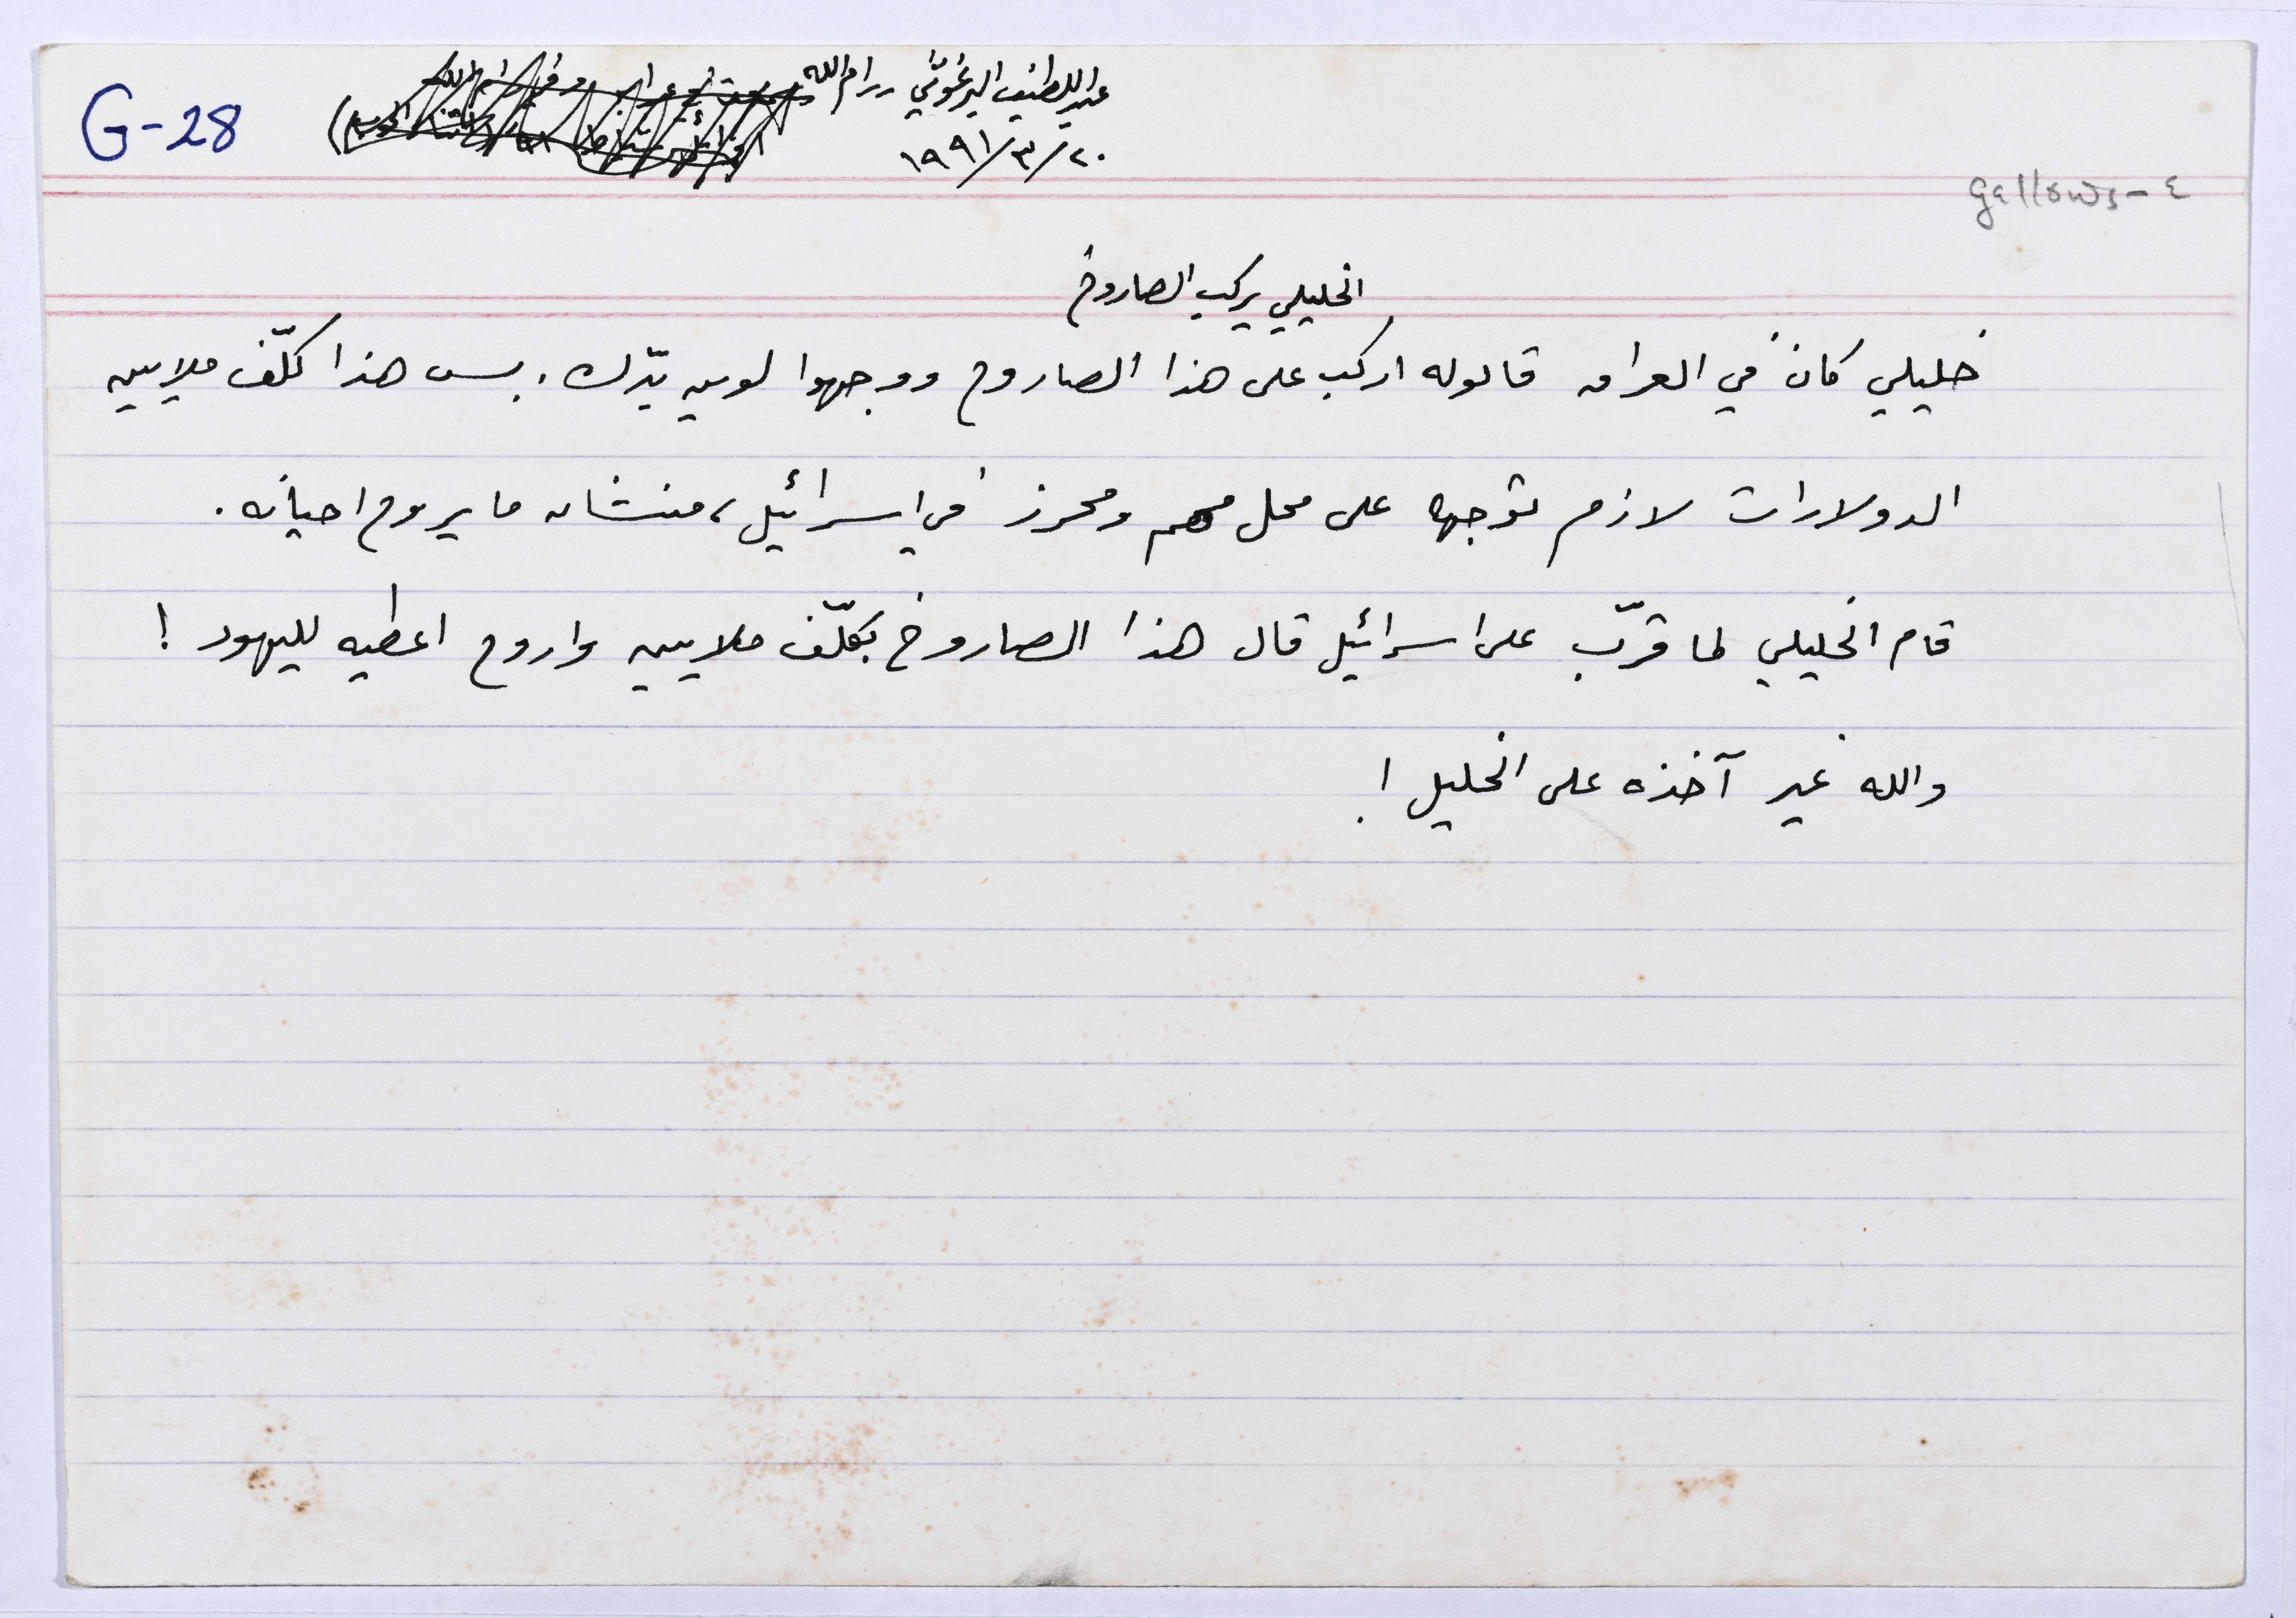 G-28
عبد اللطيف البرغوثي رام الله
٢٠/٣/١٩٩١
gallows - ٤
الخليلي يركب الصاروخ
خليلي كان في العراق قالوله اركب على هذا الصاروخ ووجهوا لوين بدّك. بس هذا كلّف ملايين
الدولارات لازم توجهه على محل مهم ومحرز في اسرائيل، منشان ما يروح احيانه.
قام الخليلي لما قرّب على اسرائيل قال هذا الصاروخ بكلّف ملايين واروح اعطيه لليهود !
والله غير آخذه على الخليل !